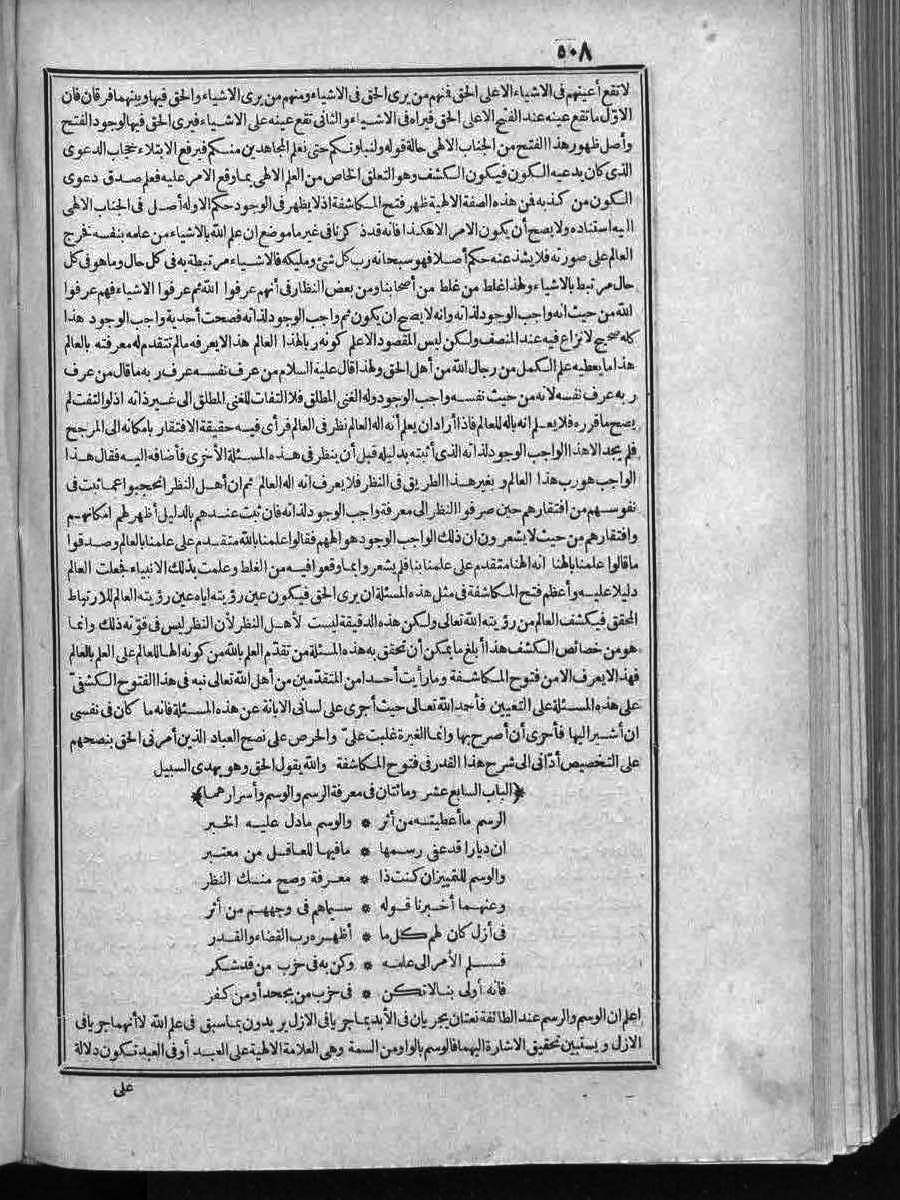 ٥٠٨
لا تقع أعينهم فى الاشياء الا على الحق فمنهم من يرى الحق فى الاشياء ومنهم من يرى الاشياء والحق فيها وبينهما فرقان فان
الاوّل ما تقع عينه عند الفتح الا على الحق فيراه فى الاشياء والثانى تقع عينه على الاشياء فيرى الحق فيها لوجود الفتح
وأصل ظهور هذا الفتح من الجناب الالهى حالة قوله ولنبلونكم حتى نعلم المجاهدين منكم فيرفع الابتلاء حجاب الدعوى
الذى كان يدعيه الكون فيكون الكشف وهو التعلق الخاص من العلم الالهى بما وقع الامر عليه فعلم صدق دعوى
الكون من كذبه فمن هذه الصفة الالهية ظهر فتح المكاشفة اذ لا يظهر فى الوجود حكم الا وله أصل فى الجناب الالهى
اليه استناده ولا يصح أن يكون الامر الا هكذا فانه قد ذكرنا فى غير ما موضع ان علم الله بالاشياء من علمه بنفسه فخرج
العالم على صورته فلا يشذ عنه حكم أصلا فهو سبحانه رب كل شئ ومليكه فالاشياء مرتبطة به فى كل حال وما هو فى كل
حال مرتبط بالاشياء ولهذا غلط من غلط من أصحابنا ومن بعض النظار فى أنهم عرفوا الله ثم عرفوا الاشياء فهم عرفوا
الله من حيث انه واجب الوجود لذاته وانه لا يصح ان يكون ثم واجب الوجود لذاته فصحت أحدية واجب الوجود هذا
كله صحيح لا نزاع فيه عند المنصف ولكن ليس المقصود الا علم كونه ربا لهذا العالم هذا لا يعرفه ما لم تتقدم له معرفته بالعالم
هذا ما يعطيه علم الكمل من رجال الله من أهل الحق ولهذا قال عليه السلام من عرف نفسه عرف ربه ما قال من عرف
ربه عرف نفسه لانه من حيث نفسه واجب الوجود وله الغنى المطلق فلا التفات للغنى المطلق الى غير ذاته اذ لو التفت لم
يصح ما قرره فلا يعلم انه باله للعالم فاذا أراد ان يعلم أنه اله العالم نظر فى العالم فرأى فيه حقيقة الافتقار بامكانه الى المرجح
فلم يجد الا هذا الواجب الوجود لذاته الذى أثبته بدليله قبل أن ينظر فى هذه المسئلة الأخرى فأضافه اليه فقال هذا
الواجب هو رب هذا العالم وبغير هذا الطريق فى النظر فلا يعرف انه اله العالم ثم ان أهل النظر انحجبوا عما ثبت فى
نفوسهم من افتقارهم حين صرفوا النظر الى معرفة واجب الوجود لذاته فان ثبت عندهم بالدليل أظهر لهم امكانهم
وافتقارهم من حيث لا يشعرون ان ذلك الواجب الوجود هو الههم فقالوا علمنا بالله متقدم على علمنا بالعالم وصدقوا
ما قالوا علمنا بالهنا انه الهنا متقدم على علمنا بنا فلم يشعروا بما وقعوا فيه من الغلط وعلمت بذلك الانبياء فجعلت العالم
دليلا عليه وأعظم فتح المكاشفة فى مثل هذه المسئلة ان يرى الحق فيكون عين رؤيته اياه عين رؤيته العالم للارتباط
المحقق فيكشف العالم من رؤيته الله تعالى ولكن هذه الدقيقة ليست لأهل النظر لأن النظر ليس فى قوّته ذلك وانما
هو من خصائص الكشف هذا أبلغ ما يمكن أن تحقق به هذه المسئلة من تقدّم العلم بالله من كونه الها للعالم على العلم بالعالم
فهذا لا يعرف الا من فتوح المكاشفة وما رأيت أحدا من المتقدّمين من أهل الله تعالى نبه فى هذا الفتوح الكشفىّ
على هذه المسئلة على التعيين فأحمد الله تعالى حيث أجرى على لسانى الابانة عن هذه المسئلة فانه ما كان فى نفسى
ان أشير اليها فأحرى أن أصرح بها وانما الغيرة غلبت علىّ والحرص على نصح العباد الذين أمرنى الحق بنصحهم
على التخصيص أدّانى الى شرح هذا القدر فى فتوح المكاشفة والله يقول الحق وهو يهدى السبيل
﴿الباب السابع عشر ومائتان فى معرفة الرسم والوسم وأسرارهما﴾
الرسم ما أعطيته من أثر * والوسم ما دل عليه الخبر
ان ديارا قد عفى رسمها * ما فيها للعاقل من معتبر
والوسم للتمييز ان كنت ذا * معرفة وصح منك النظر
وعنهما أخبرنا قوله * سيماهم فى وجههم من أثر
فى أزل كان لهم كل ما * أظهره رب القضاء والقدر
فسلم الأمر الى علمه * وكن به فى حزب من قد شكر
فانه أولى بنا لا تكن * فى حزب من يجحد أو من كفر
اعلم ان الوسم والرسم عند الطائفة نعتان يجريان فى الأبد بما جريا فى الازل يريدون بما سبق فى علم الله لا أنهما جريا فى
الازل ويستبين تحقيق الاشارة اليهما فالوسم بالواو من السمة وهى العلامة الالهية على العبد أو فى العبد تكون دلالة
على